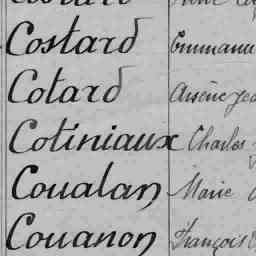 Costard
Cotard Arsène
Cotiniaux Charles
Coualan Marie
Couanon François